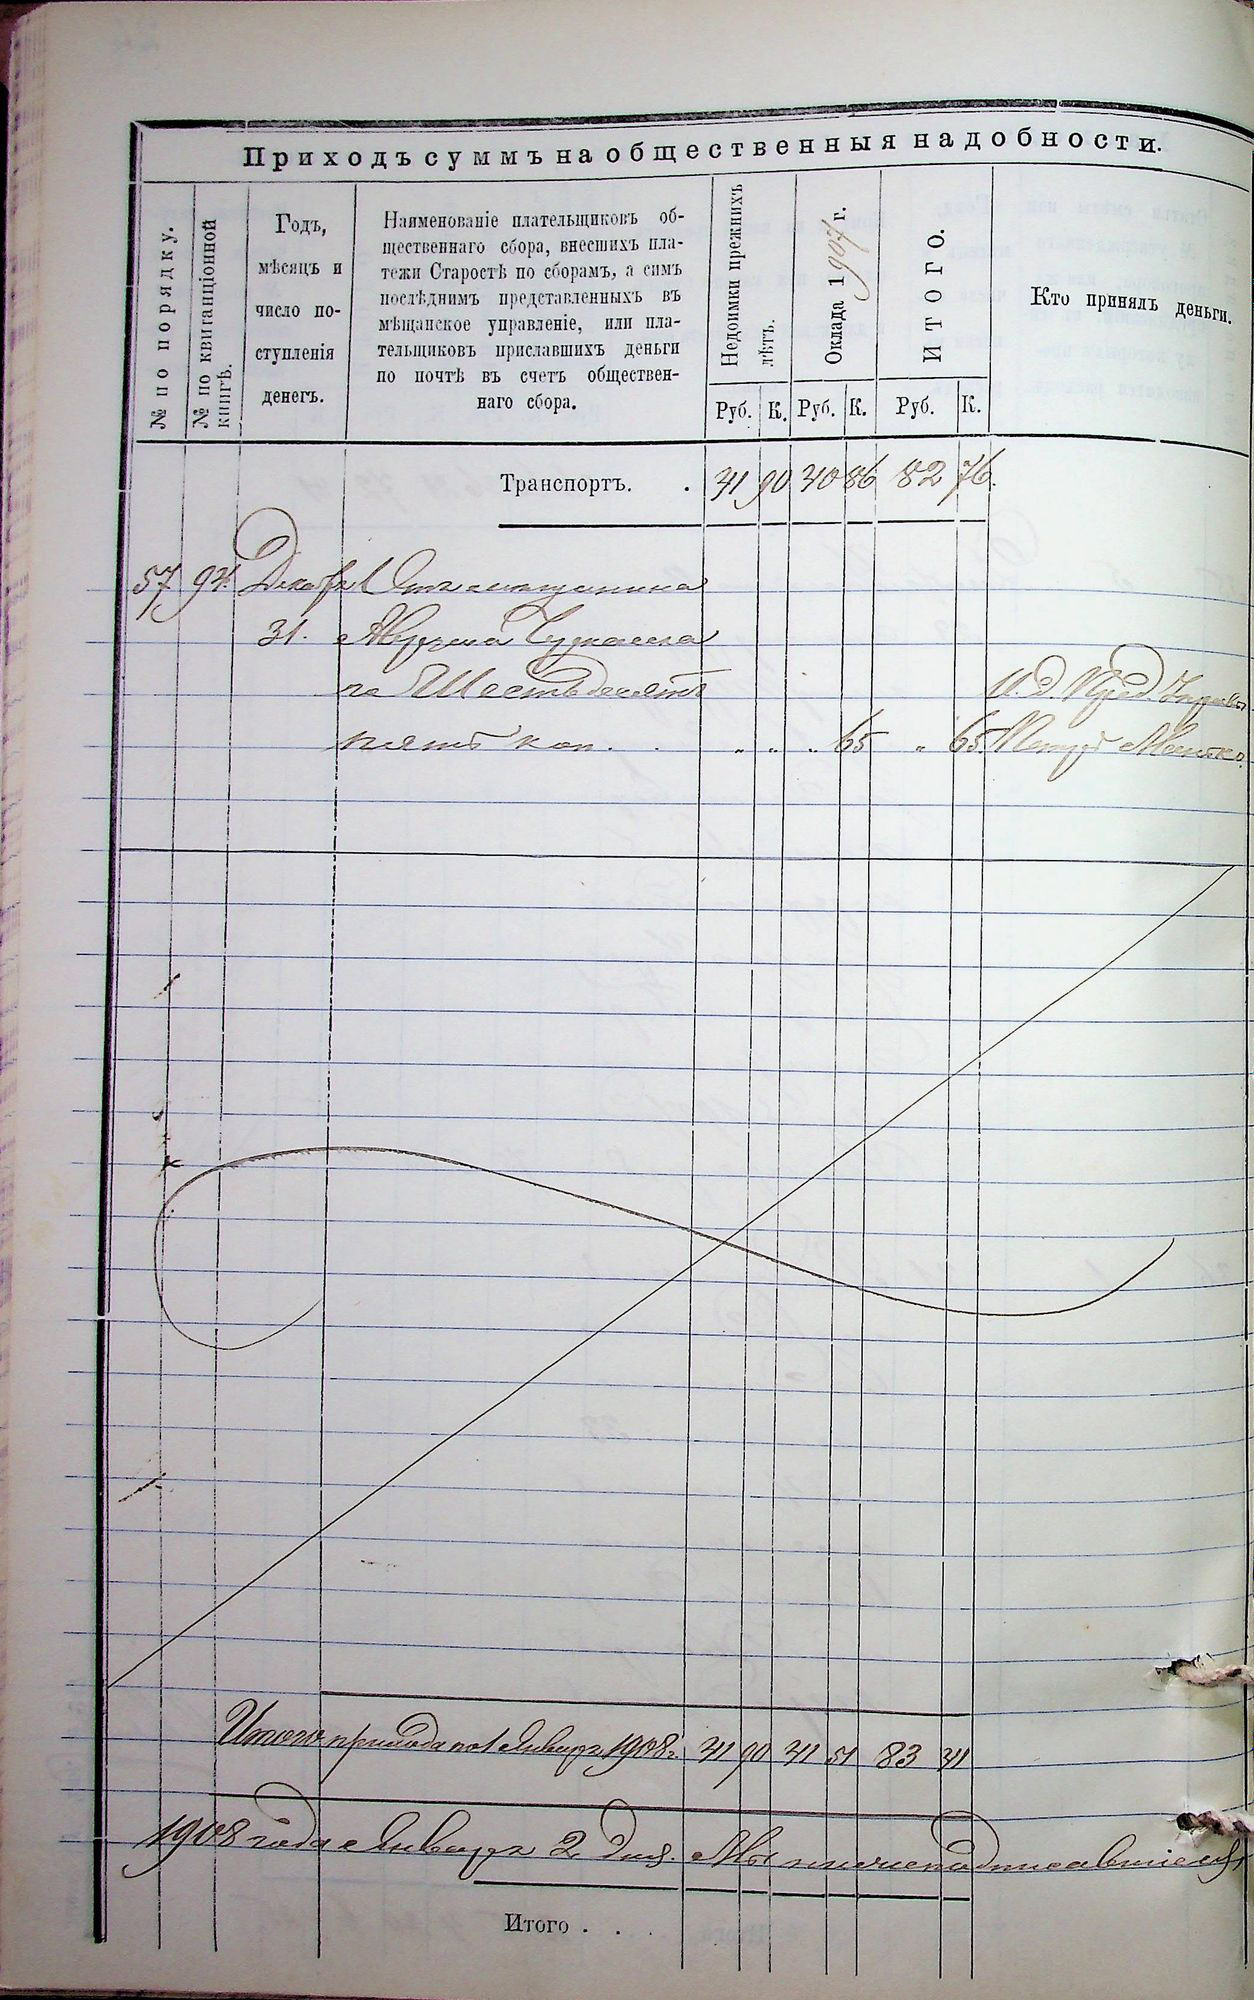 Приходъ суммъ на общественныя надобности.
№ по порядку.
№ по квитанціонной
книгѣ.
Годъ,
мѣсяцъ и
число по-
ступленія
денегъ.
Наименованіе плательщиковъ об-
щественнаго сбора, внесшихъ пла-
тежи Старостѣ по сборамъ, а симъ
послѣднимъ представленныхъ въ
мѣщанское управленіе, или пла-
тельщиковъ приславшихъ деньги
по почтѣ въ счетъ обществен-
наго сбора.
Недоимки прежнихъ
лѣтъ.
Оклада 1907 г.
Итого.
Кто принялъ деньги.
Руб. К. Руб. К. Руб. К.
Транспортъ. . 41 90 40 86 82 76.
57 94. Декабря Отъ мѣщанина
31.
Шестьдесятъ И. Д. Пред.
пять коп. . „ „ „ 65 „ 65. Петръ
Итого прихода по 1 Январь 1908 г. 41 90 41 51 83 41
1908 года Января 2 дня. Мы нижеподписавшіеся
Итого . . .